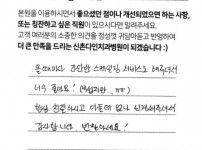 본원을 이용하시면서 좋으셨던 점이나 개선되었으면 하는 사항,
또는 칭찬하고 싶은 직원이 있으시다면 알려주세요.
고객 여러분의 소중한 의견을 정성껏 귀담아듣고 반영하여
더 큰 만족을 드리는 신촌다인치과병원이 되겠습니다 :)
올때마다 간단한 스케일링 서비스로 해주셔서
너무 좋아요!
항상 친절하시고 아플때 없나 신경써주셔서
감사합니다. 번창하세요!